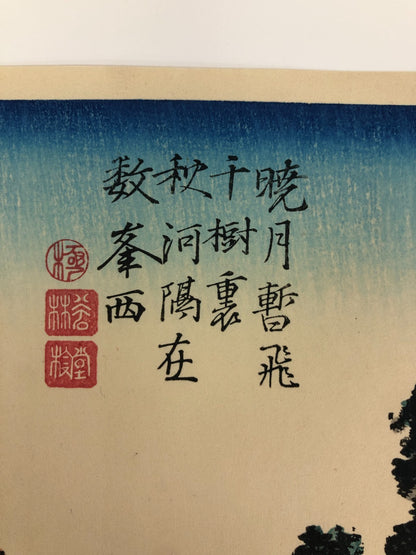 暁月暫飛
千樹裏
秋河隔在
数峯西
極